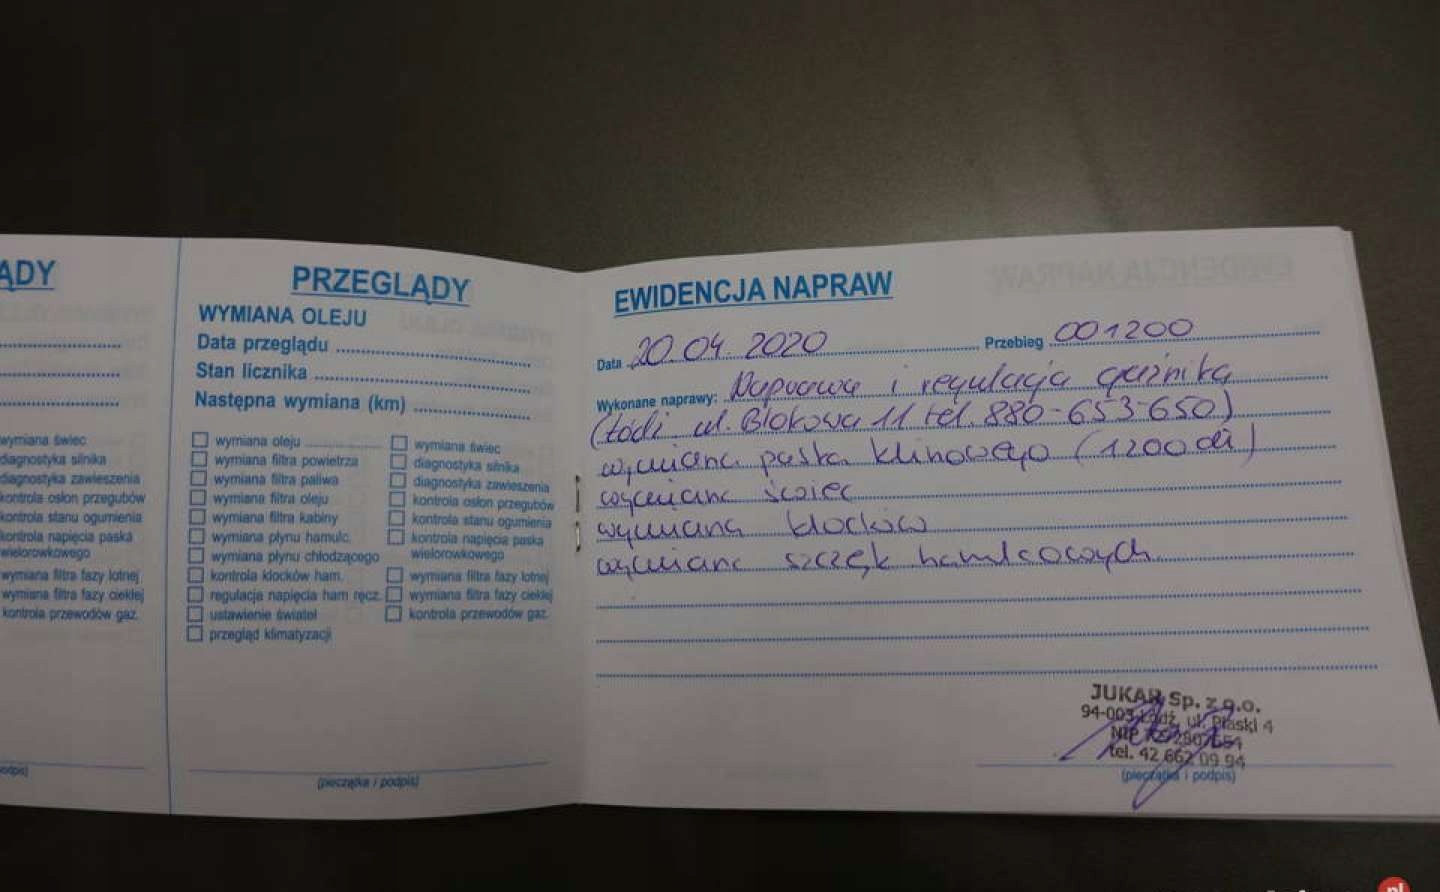 ĄDY
wymiana świec
diagnostyka silnika
diagnostyka zawieszenia
kontrola osłon przegubów
kontrola stanu ogumienia
kontrola napięcia paska
wielorowkowego
wymiana filtra fazy lotnej
wymiana filtra fazy ciekłej
kontrola przewodów gaz.
podpis)
PRZEGLĄDY
WYMIANA OLEJU
Data przeglądu
Stan licznika
Następna wymiana (km)
wymiana oleju
wymiana filtra powietrza
wymiana filtra paliwa
wymiana filtra oleju
wymiana filtra kabiny
wymiana płynu hamulc.
wymiana płynu chłodzącego
kontrola klocków ham.
regulacja napięcia ham ręcz.
ustawienie świateł
przegląd klimatyzacji
wymiana świec
diagnostyka silnika
diagnostyka zawieszenia
kontrola osłon przegubów
kontrola stanu ogumienia
kontrola napięcia paska
wielorowkowego
wymiana filtra fazy lotnej
wymiana filtra fazy ciekłej
kontrola przewodów gaz.
(pieczątka i podpis)
EWIDENCJA NAPRAW
Data 20.04.2020 Przebieg 001200
Wykonane naprawy: Naprawa i regulacja gaźnika
(Łódź ul. Blokowa 11 tel. 880-653-650)
wymiana paska klinowego (1200
wymiana świec
wymiana klocków
wymiana szczęk hamulcowych
JUKAR Sp. z o.o.
94-003 Łódź, ul. Płaski 4
NIP
tel. 42 662 09 94
(pieczątka i podpis)